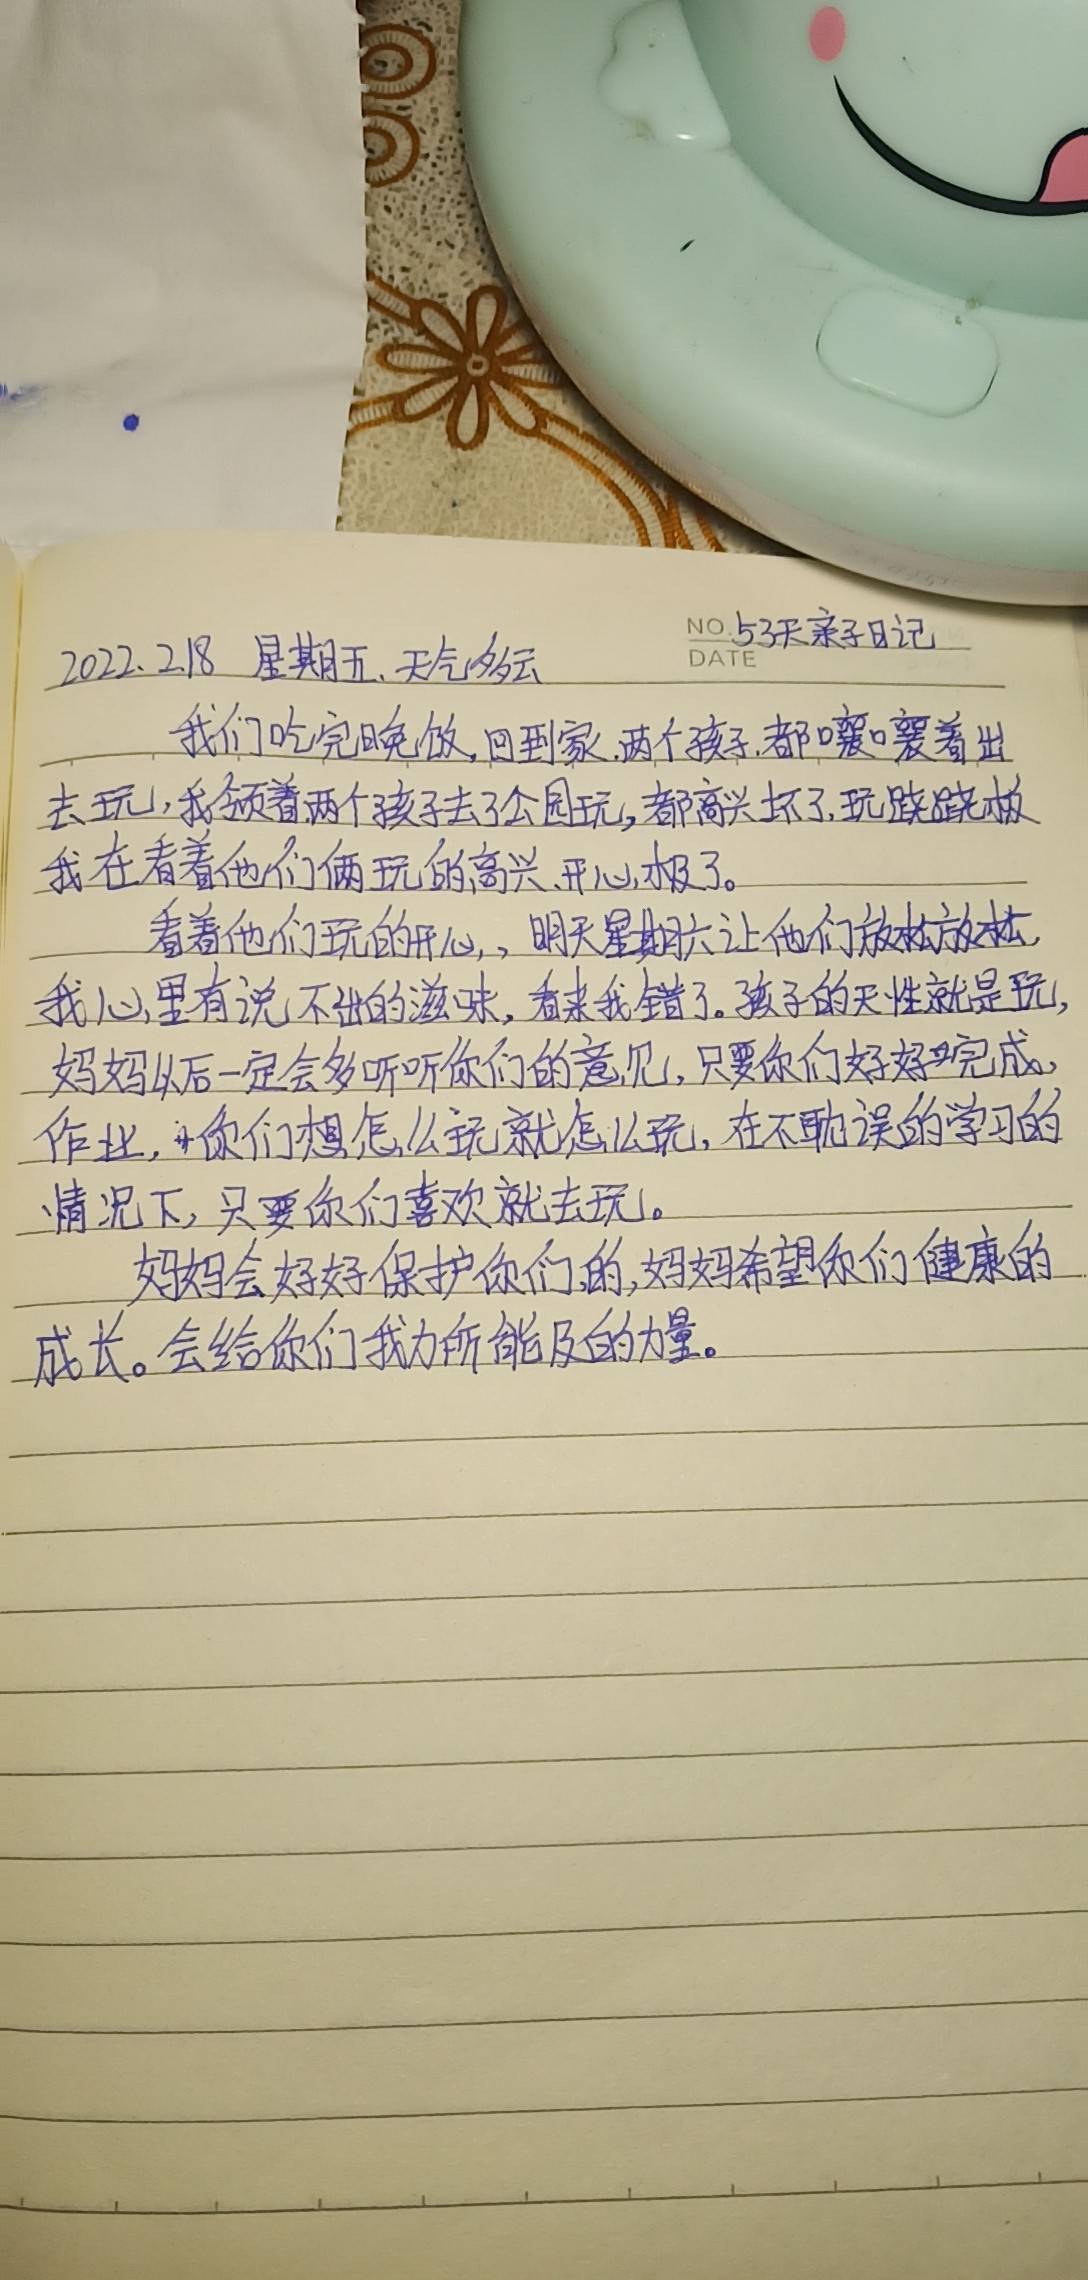 NO. 53天亲子日记
DATE
2022.2.18 星期五、天气多云
我们吃完晚饭,回到家.两个孩子.都嚷嚷着出
去玩,我领着两个孩子去了公园玩,都高兴坏了.玩跷跷板
我在看着他们俩玩的高兴、开心极了。
看着他们玩的开心,,明天星期六让他们放松放松,
我心里有说不出的滋味,看来我错了。孩子的天性就是玩,
妈妈以后一定会多听听你们的意见,只要你们好好完成,
作业,你们想怎么玩就怎么玩,在不耽误的学习的
情况下,只要你们喜欢就去玩。
妈妈会好好保护你们的,妈妈希望你们健康的
成长。会给你们我力所能及的力量。